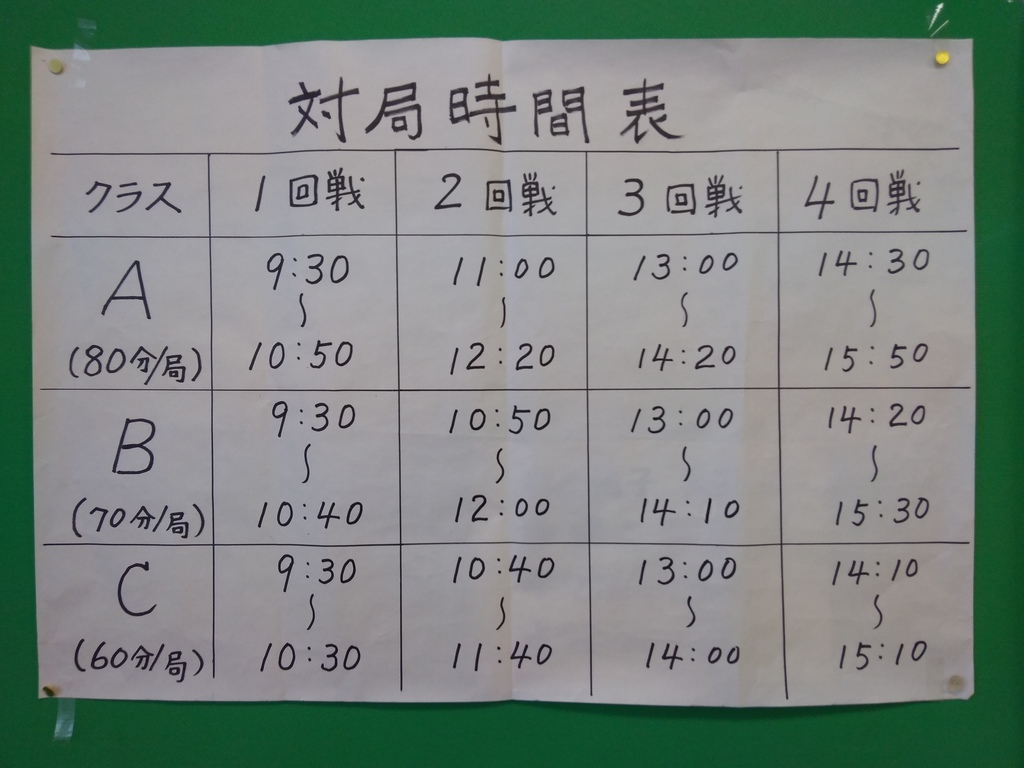 対局時間表
クラス 1回戦 2回戦 3回戦 4回戦
A 9:30 11:00 13:00 14:30
〜 〜 〜 〜
(80分/局) 10:50 12:20 14:20 15:50
B 9:30 10:50 13:00 14:20
〜 〜 〜 〜
(70分/局) 10:40 12:00 14:10 15:30
C 9:30 10:40 13:00 14:10
〜 〜 〜 〜
(60分/局) 10:30 11:40 14:00 15:10